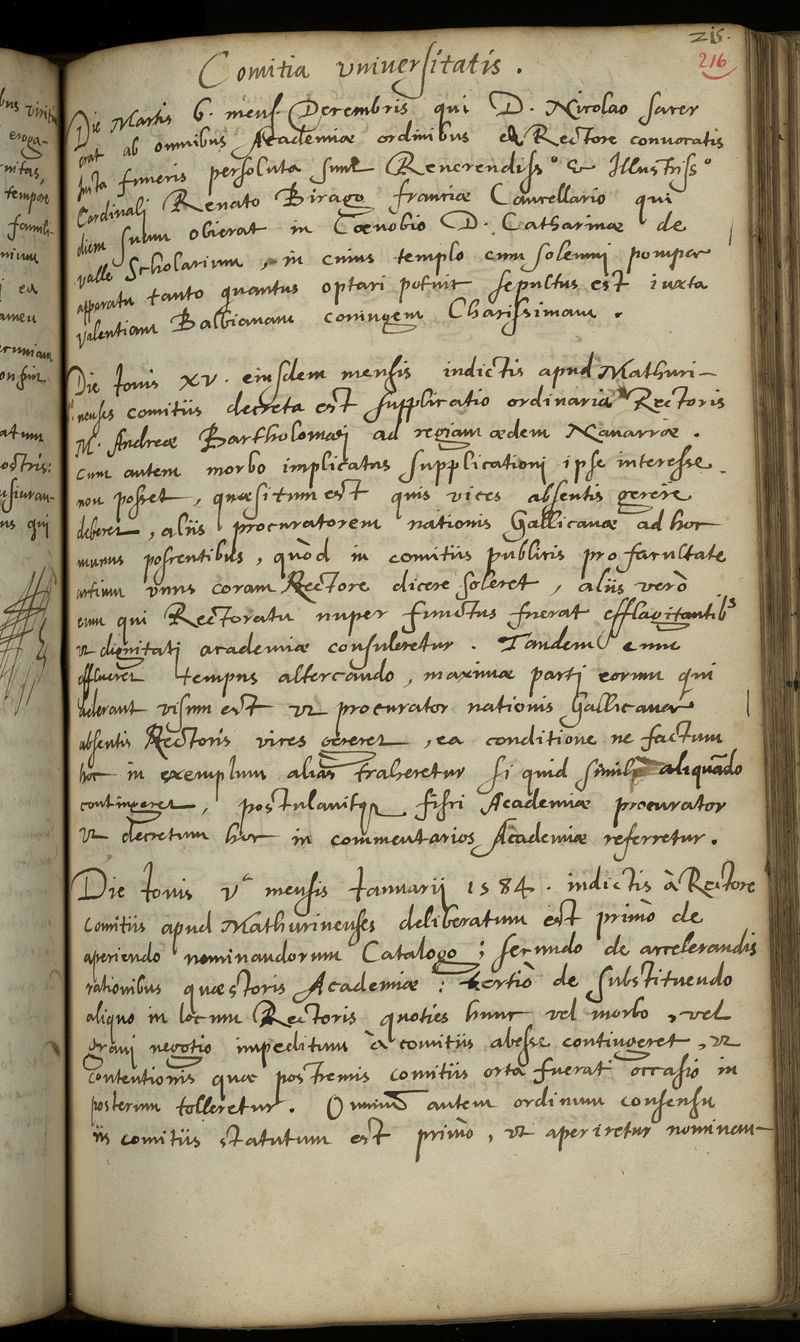 215.
216
Comitia vniuersitatis.
Die Martis 6. mens. Decembris qui D. Nicolao sacer
erat ab omnibus Academiæ ordinibus a Rectore conuocatis
iusta funeris persoluta sunt Reuerendiss° & Illustriss°
Cardinali Renato Birago franciæ Cancellario qui
diem suum obierat in Cœnobio D. Catharinæ de
valle Scholarium, in cuius templo cum solemni pompæ
apparatu tanto quantus optari potuit sepultus est iuxta
Valentiam Balbianam coniugem Charissimam.
Die Iouis XV. eiusdem mensis indictis apud Mathuri-
nenses comitiis decreta est supplicatio ordinaria Rectoris
M. Andreæ Bartholomæi ad regiam ædem Nauarræ.
Cum autem morbo implicatus supplicationi ipse interesse
non posset, quæsitum est quis vices absentis gerere
deberet, aliis procuratorem nationis Gallicanæ ad hoc
munus poscentibus, quòd in comitiis publicis pro facultate
artium vnus coram Rectore dicere soleret, aliis verò
eum qui Rectoratu nuper functus fuerat efflagitantib9
vt dignitati academiæ consuleretur. Tandem cum
efflueret tempus altercando, maximæ parti eorum qui
aderant visum est vt procurator nationis Gallicanæ
absentis Rectoris vices gereret, ea conditione ne factum
hoc in exemplum alias traheretur si quid simile aliquãdo
contingeret, postulauitq; fisci Academiæ procurator
vt decretum hoc in commentarios Academiæ referretur.
Die Iouis Vª mensis Ianuarij 1584. indictis à Rectore
Comitiis apud Mathurinenses deliberatum est primò de
aperiendo nominandorum Catalogo; secundo de accelerandis
rationibus quæstoris Academiæ; tertiò de substituendo
aliquo in locum Rectoris quoties hunc vel morbo, vel
graui negotio impeditum à comitiis abesse contingeret, vt
contentionis quæ postremis comitiis orta fuerat occasio in
posterum tolleretur. Omnium autem ordinum consensu
iis comitiis statutum est primò, vt aperiretur nominan-